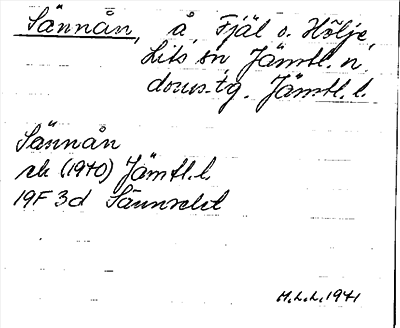 Sännån, å, Fjäl o. Hölje,
Lits sn Jämtl. n.
doms.tg. Jämtl. l.
Sännån
rk (1940) Jämtl. l.
19F 3d Sännsebt
M.L.L. 1941